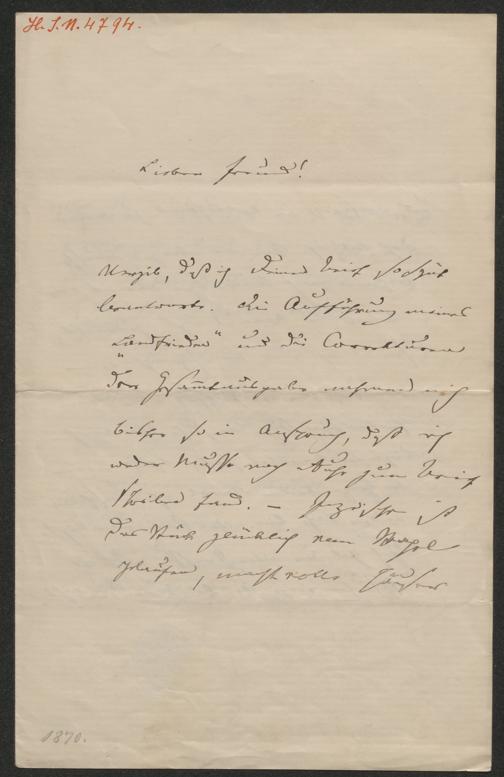 H. I. N. 4794.
Lieber Freund!
Vergib, daß ich Deinen Brief so spät
beantworte. Die Aufführung meines
„Landfrieden“ und die Correkturen
der Gesammtausgabe nahmen mich
bisher so in Anspruch, daß ich
weder Muße noch Ruhe zum Brief
schreiben fand. – Inzwischen ist
das Stück glücklich vom Stapel
gelaufen, macht volle Häuser
1870.